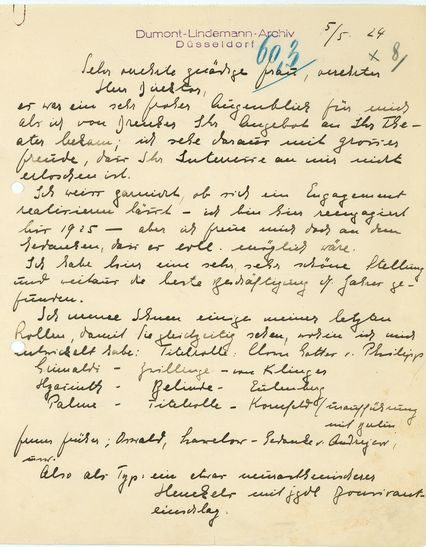 Dumont-Lindemann-Archiv
Düsseldorf
5/5. 24
60,3
x 8/
Sehr verehrte gnädige Frau, verehrter
Herr Direktor,
es war ein sehr froher Augenblick für mich
als ich von Ihr Angebot an Ihr The-
ater bekam; ich sehe daraus mit grosser
Freude, dass Ihr Interesse an mir nicht
erloschen ist.
Ich weiss garnicht, ob sich ein Engagement
realisieren lässt - ich bin hier reengagiert
bis 1925 - aber ich freue mich doch an dem
Gedanken, dass es evtl. möglich wäre.
Ich habe hier eine sehr, sehr schöne Stellung
und weitaus die beste Beschäftigung des Jahres ge-
funden.
Ich nenne Ihnen einige meiner letzten
Rollen, damit Sie gleichzeitig sehen, wohin ich mich
entwickelt habe: Titelrolle: Clown Gottes v. Philipp
Grimaldi - Zwillinge - von Klinger
Hyazinth - Belinde - Eulenberg
Palme - Titelrolle - Kornfeld (Uraufführung
mit
ferner früher: Oswald, - Gedanke v. Andrejew,
usw.
Also als Typ: ein etwas
mit jgdl. Bonvivant-
einschlag.